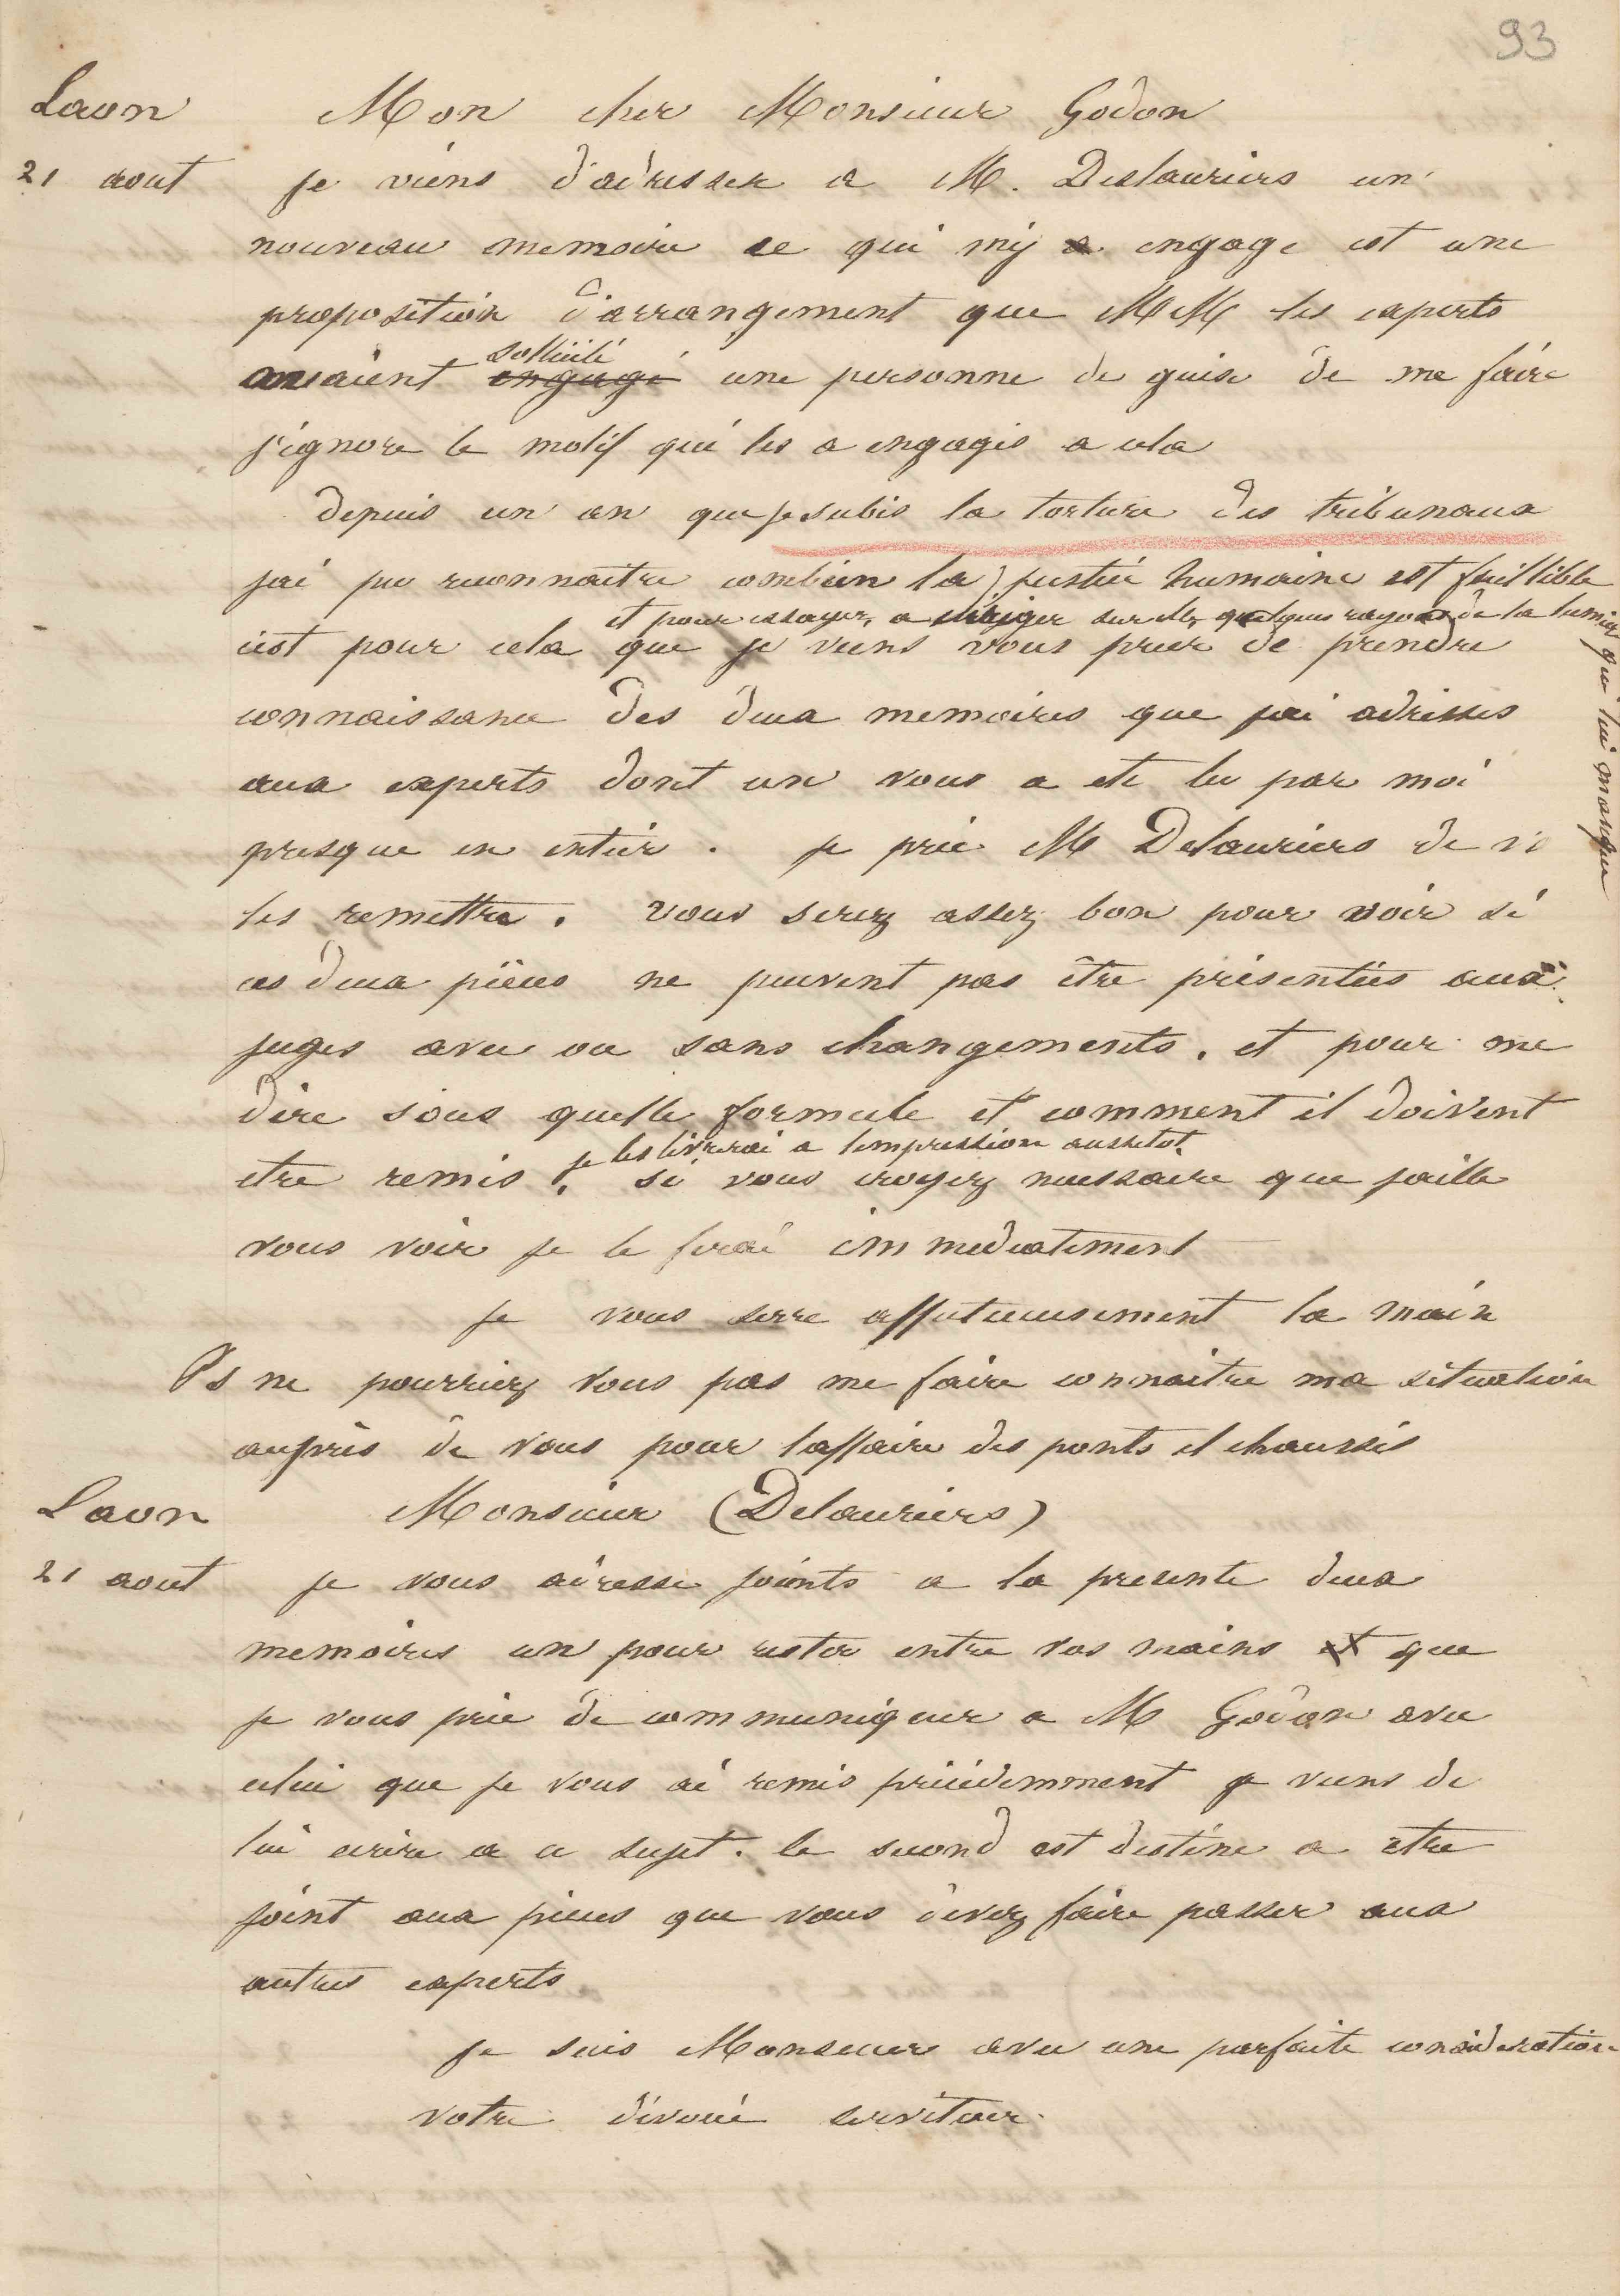 93
Laon
Mon cher Monsieur Godon
21 aout
je viens d'adresser a M. Deslauriers un
nouveau memoire ce qui m'y a engage est une
proposition d'arrangement que MM les experts
avaient sollicité engagé une personne de guise de me faire
j'ignore le motif qui les a engagés a cela
depuis un an que je subis la torture des tribunaux
jai pu reconnaitre combien la justice humaine est faillible
et pour essayer, a diriger sur elle quelques rayons de la lumiere qui lui manque
cest pour cela que je viens vous prier de prendre
connaissance des deux memoires que jai adresses
aux experts dont un vous a ete lu par moi
presque en entier. je prie M Delauriers de
les remettre. vous serez assez bon pour voir si
ces deux pièces ne peuvent pas être présentées aux
juges avec ou sans changements, et pour me
dire sous quelle formule et comment il doivent
je les livrerai a limpression aussitot.
etre remis. si vous croyez necessaire que jaille
vous voir je le ferai immediatement
je vous serre affectueusement la main
Ps ne pourriez vous pas me faire connaitre ma situation
auprès de vous pour laffaire des ponts et chaussés
Laon
Monsieur (Delauriers)
21 aout
je vous adresse joints a la presente deux
memoires un pour rester entre vos mains et que
je vous prie de communiquer a M Godon avec
celui que je vous ai remis précédemment je viens de
lui ecrire a ce sujet. le second est destiné a etre
joint aux pieces que vous devez faire passer aux
autres experts
je suis Monsieur avec une parfaite consideration
votre dévoué serviteur.